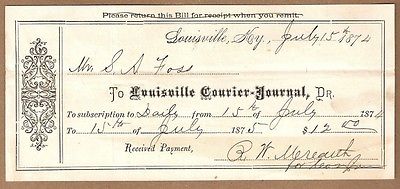 Please return this Bill for receipt when you remit.
Louisville, Ky, July 15th 1874
Mr S. A. Foss
To Louisville Courier-Journal, Dr.
To subscription to Daily from 15th of July 1874
To 15th of July 1875 $12.00
Received Payment,
R. W. Meredith
for Comp